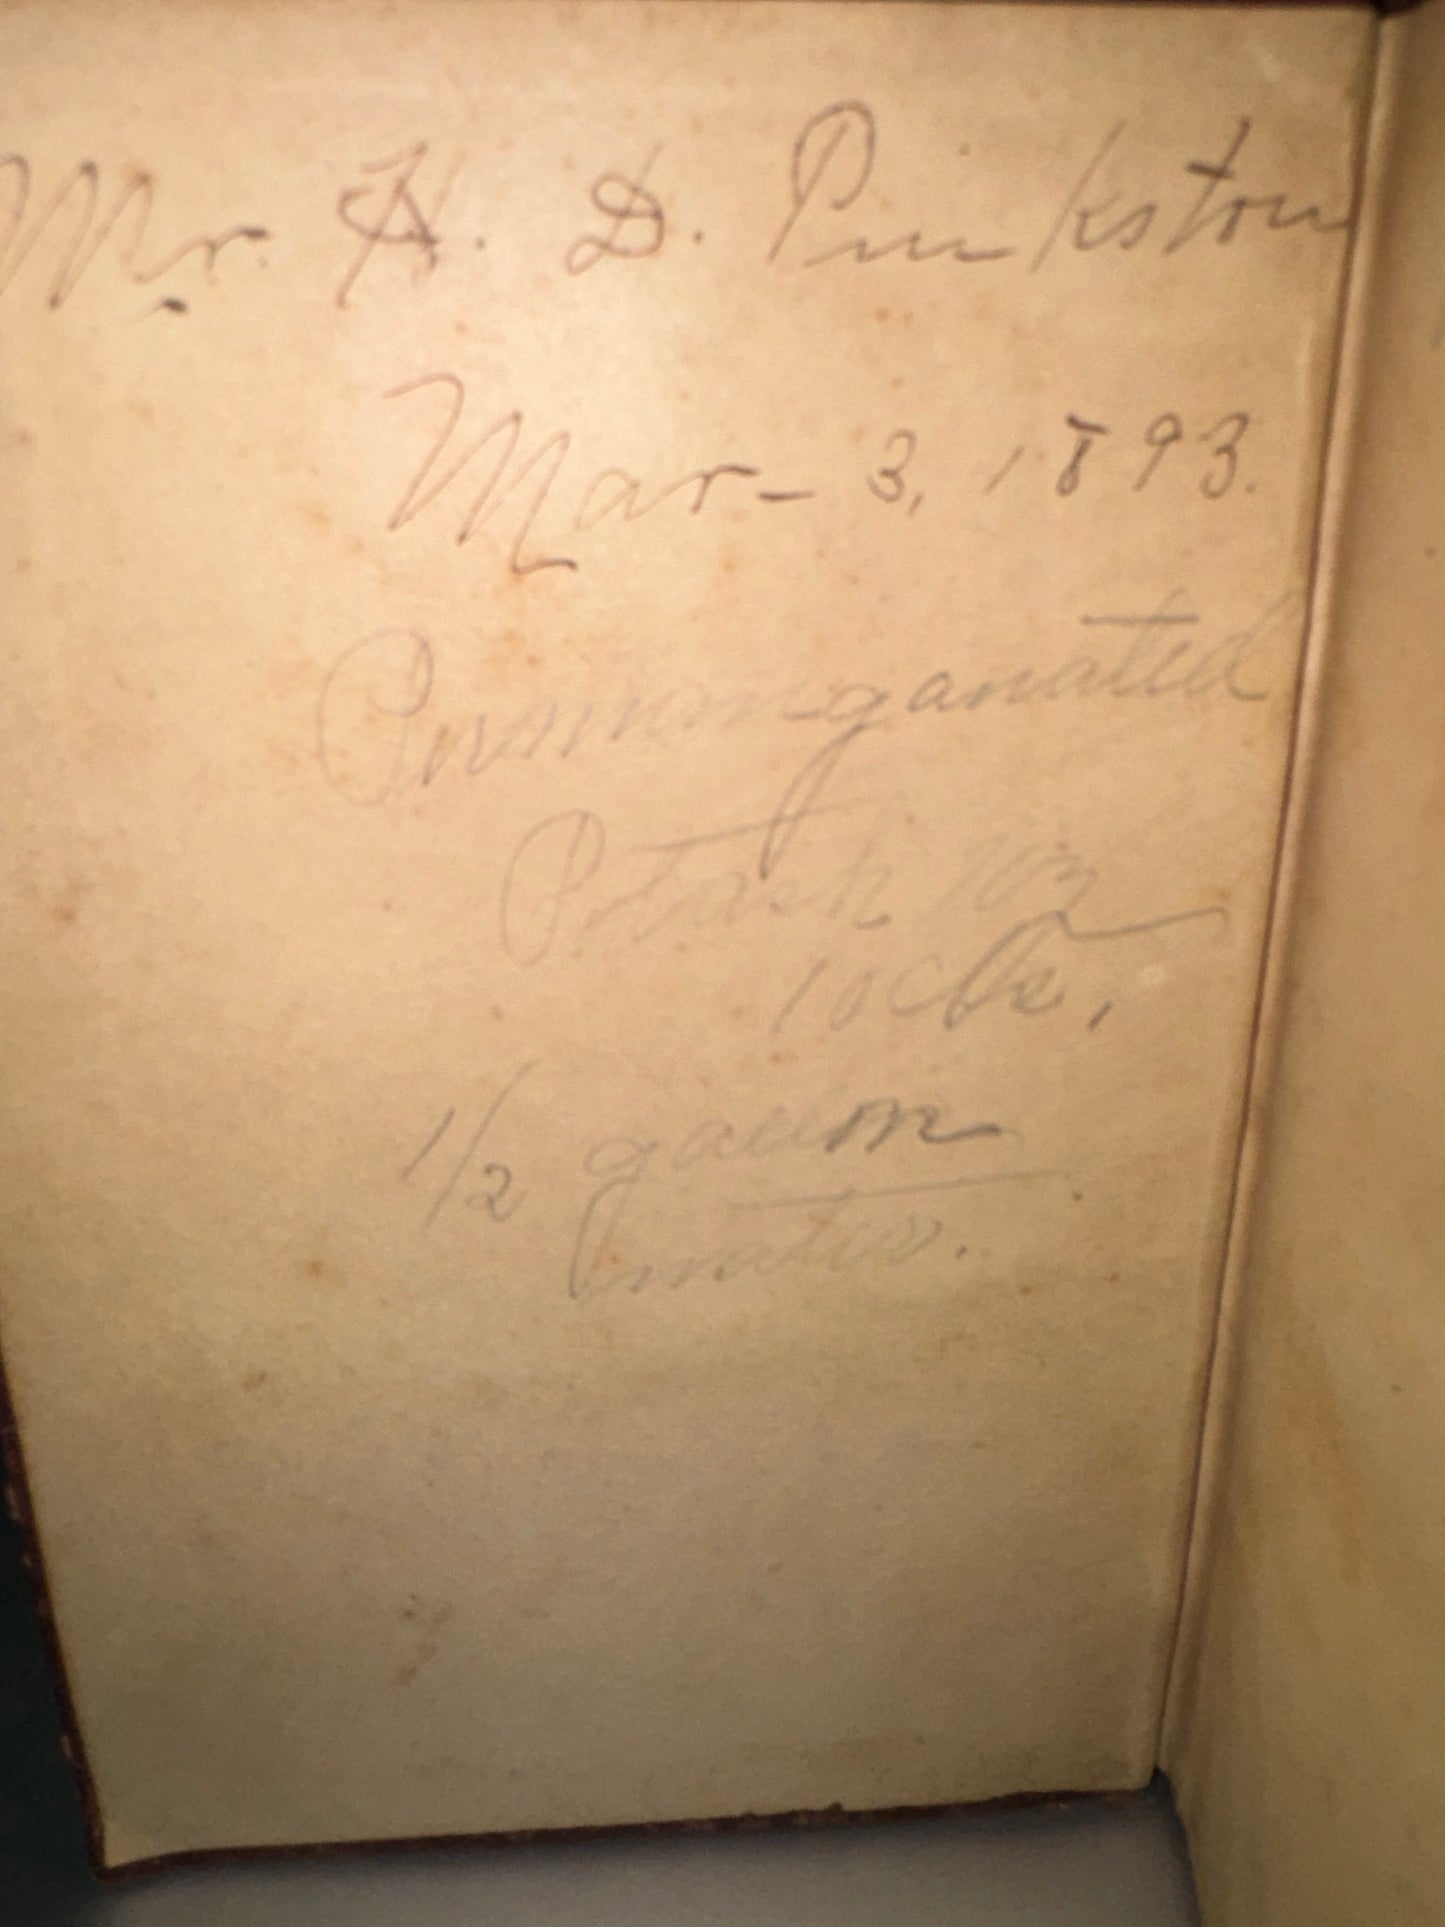 Mr. H. D. Pinkston
Mar- 3, 1893.
Permanganated
Potash 10z
10cts.
1/2 gallon
water.